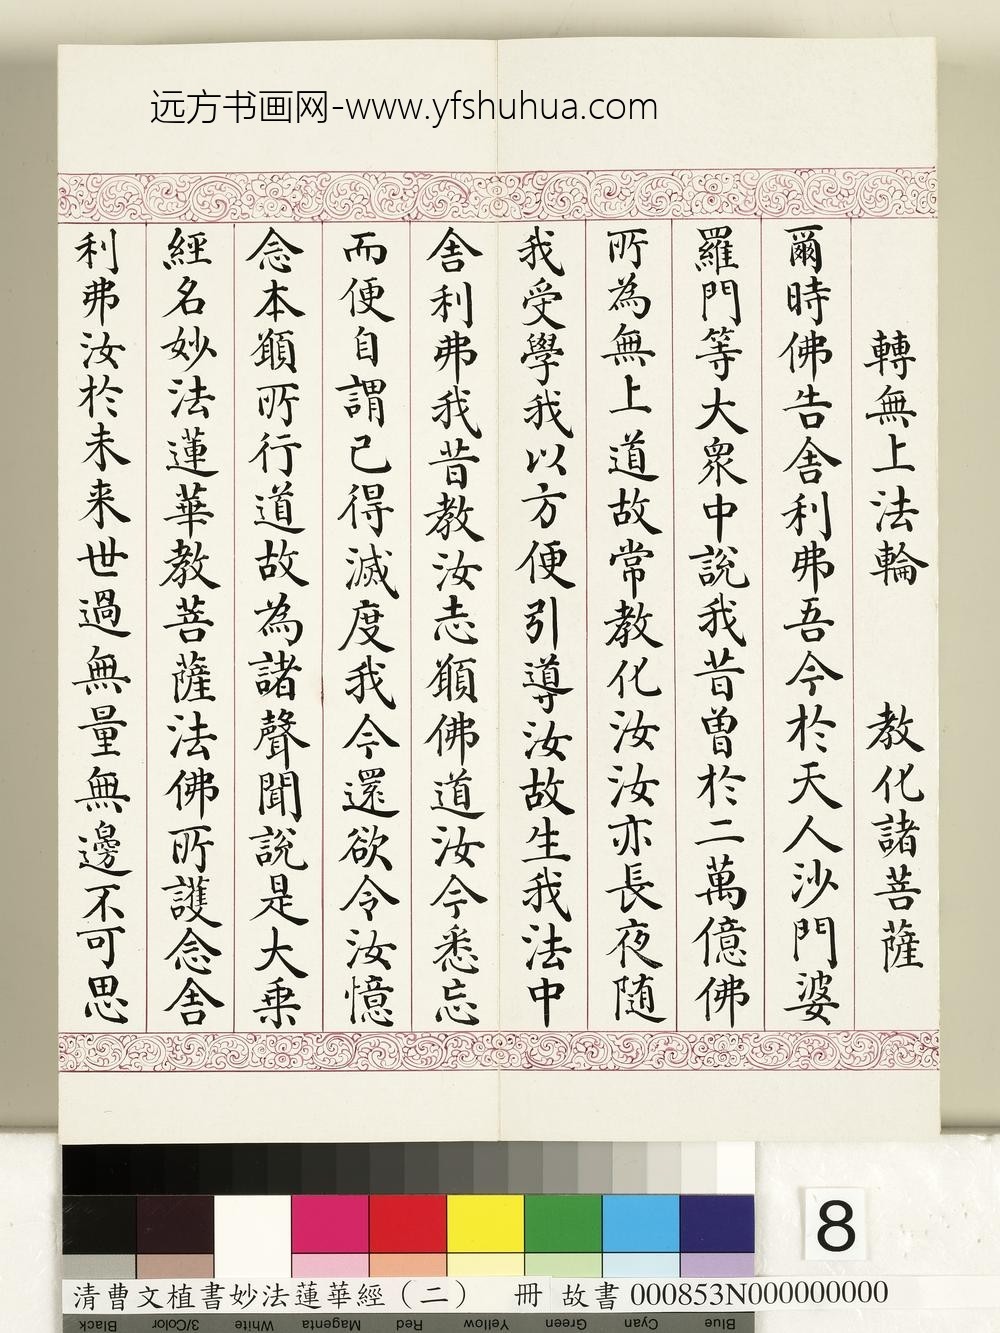 远方书画网-www.yfshuhua.com
轉無上法輪　教化諸菩薩
爾時佛告舎利弗吾今於天人沙門婆
羅門等大衆中說我昔曽於二萬億佛
所為無上道故常教化汝汝亦長夜随
我受學我以方便引導汝故生我法中
舎利弗我昔教汝志願佛道汝今悉忘
而便自謂已得滅度我今還欲令汝憶
念本願所行道故為諸聲聞說是大乗
經名妙法蓮華教菩薩法佛所護念舎
利弗汝於未来世過無量無邊不可思
8
清曹文植書妙法蓮華經（二）　冊 故書 000853N000000000
Black 3/Color White Magenta Red Yellow Green Cyan Blue